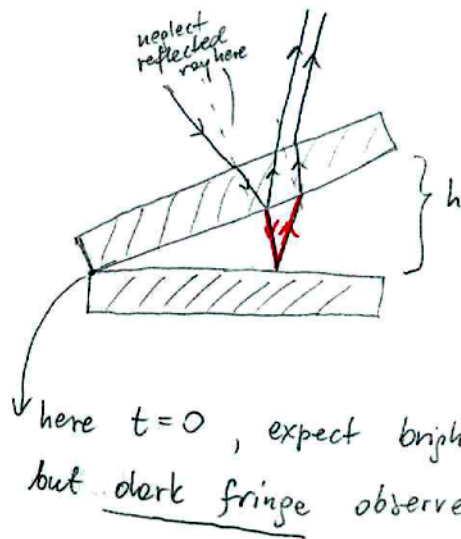 neglect
reflected
ray here
h
here t = 0 , expect brigh
but dark fringe observe